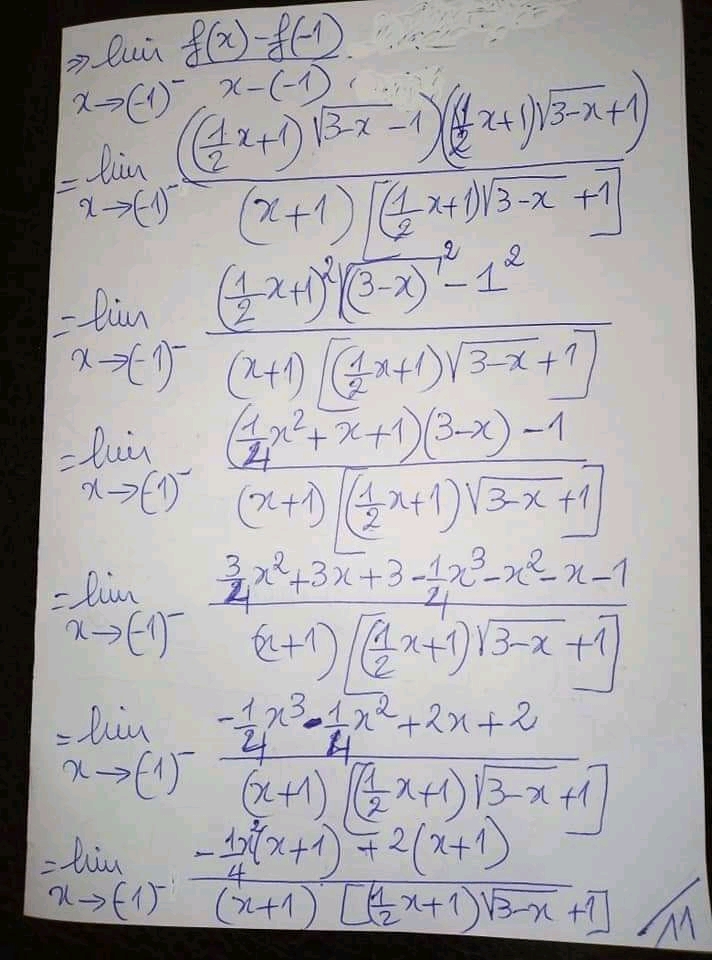 ⇒ lim (f(x) - f(-1))/(x - (-1))
x→(-1)⁻
= lim (((1/2)x+1)√(3-x) - 1)((1/2)x+1)√(3-x)+1)/((x+1)[((1/2)x+1)√(3-x) + 1])
x→(-1)⁻
= lim (((1/2)x+1)²√(3-x)² - 1²)/((x+1)[((1/2)x+1)√(3-x)+1])
x→(-1)⁻
= lim (((1/4)x²+x+1)(3-x) - 1)/((x+1)[((1/2)x+1)√(3-x)+1])
x→(-1)⁻
= lim ((3/4)x²+3x+3-(1/4)x³-x²-x-1)/((x+1)[((1/2)x+1)√(3-x)+1])
x→(-1)⁻
= lim (-(1/4)x³-(1/4)x²+2x+2)/((x+1)[((1/2)x+1)√(3-x)+1])
x→(-1)⁻
= lim (-(1/4)x²(x+1)+2(x+1))/((x+1)[((1/2)x+1)√(3-x)+1])
x→(-1)⁻
/11